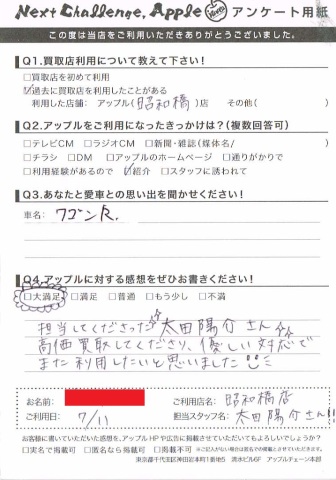 Next Challenge, Apple アンケート用紙
この度は当店をご利用いただきありがとうございました。
Q1.買取店利用について教えて下さい!
□買取店を初めて利用
☑過去に買取店を利用したことがある
利用した店舗: アップル(昭和橋)店 その他( )
Q2.アップルをご利用になったきっかけは?(複数回答可)
□テレビCM □ラジオCM □新聞・雑誌(媒体名/ )
□チラシ □DM □アップルのホームページ □通りがかりで
□利用経験があるので ☑紹介 □スタッフに誘われて
Q3.あなたと愛車との思い出を聞かせください!
車名: ワゴンR.
Q4.アップルに対する感想をぜひお書きください!
□大満足 □満足 □普通 □もう少し □不満
担当してくださった 太田陽介さん
高価買取してくださり、優しい対応で
また利用したいと思いました
お名前:
ご利用店名: 昭和橋店
ご利用日: 7/11
担当スタッフ名: 太田陽介さん!!
お客様に書いていただいた感想を、アップルHPや広告に掲載させていただいてもよろしいでしょうか?
□実名で掲載可 □匿名なら掲載可 □掲載不可
東京都千代田区神田岩本町1番地5 清水ビル6F アップルチェーン本部